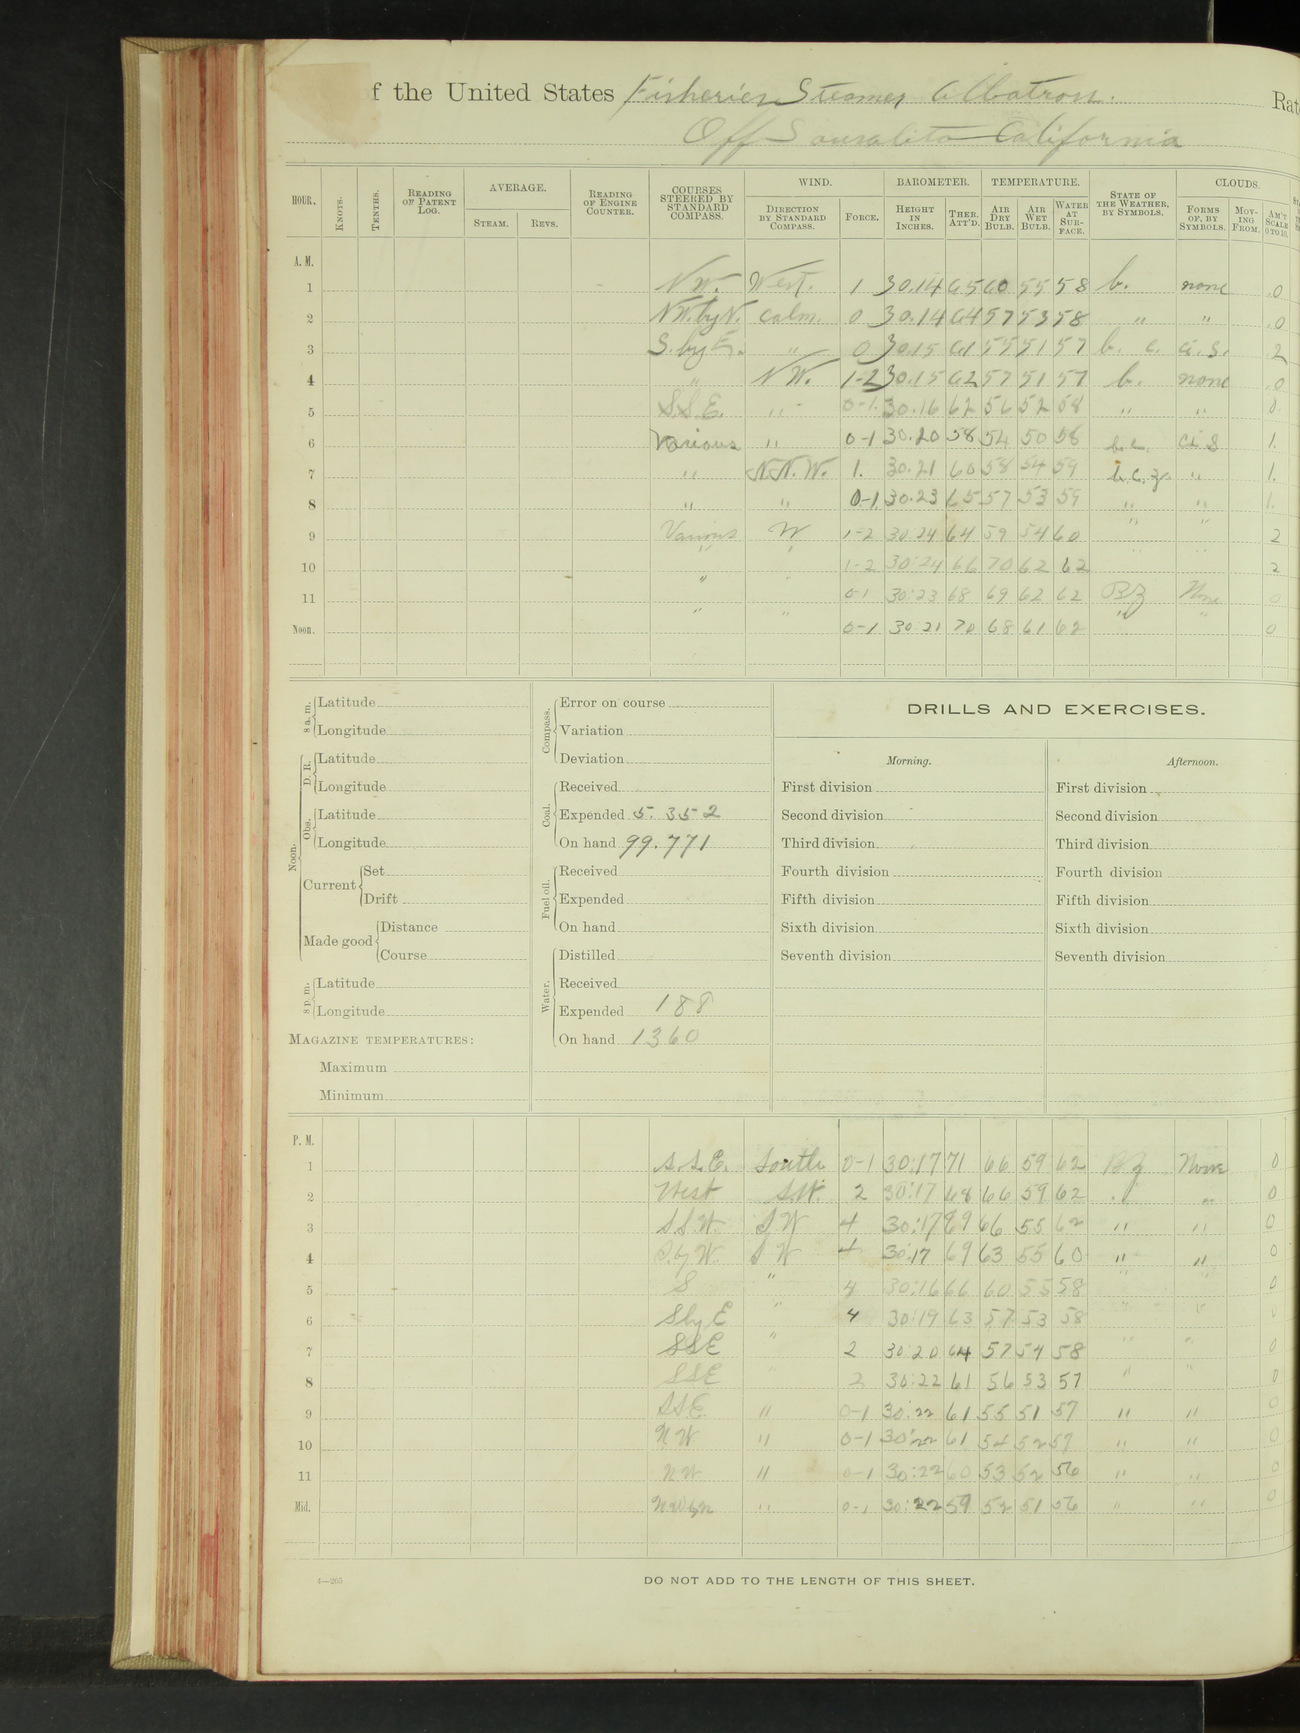 f the United States Fisheries Steamer Albatross. Rat
Off Sausalito California
HOUR. KNOTS. TENTHS. READING OF PATENT LOG. AVERAGE. STEAM. REVS. READING OF ENGINE COUNTER. COURSES STEERED BY STANDARD COMPASS. WIND. DIRECTION BY STANDARD COMPASS. FORCE. BAROMETER. HEIGHT IN INCHES. THER. ATT'D. TEMPERATURE. AIR DRY BULB. AIR WET BULB. WATER AT SURFACE. STATE OF THE WEATHER, BY SYMBOLS. CLOUDS. FORMS OF, BY SYMBOLS. MOVING FROM. AM'T SCALE 0 TO 10.
A. M.
1 NW. West. 1 30.14 65 60 55 58 b. none .0
2 NW. by N. calm. 0 30.14 64 57 53 58 " " .0
3 S. by E. " 0 30.15 61 55 51 57 b. c. ci. S. 2
4 " NW. 1-2 30.15 62 57 51 57 b. none .0
5 S.S.E. " 0-1. 30.16 62 56 52 58 " " 0.
6 Various " 0-1 30.20 58 54 50 56 b.c. ci S 1.
7 " N.N.W. 1. 30.21 60 58 54 59 b.c.z. " 1.
8 " " 0-1 30.23 65 57 53 59 " " 1.
9 Various W 1-2 30.24 64 59 54 60 " " 2
10 " " 1-2 30:24 66 70 62 62 " " 2
11 " " 0-1 30:23 68 69 62 62 BZ None 0
Noon. " " 0-1 30:21 70 68 61 62 " " 0
8 a. m. Latitude
Longitude
Noon. D. R. Latitude
Longitude
Obs. Latitude
Longitude
Current Set
Drift
Made good Distance
Course
8 p. m. Latitude
Longitude
MAGAZINE TEMPERATURES:
Maximum
Minimum
Compass. Error on course
Variation
Deviation
Coal. Received
Expended 5.352
On hand 99.771
Fuel oil. Received
Expended
On hand
Water. Distilled
Received
Expended 188
On hand 1360
DRILLS AND EXERCISES.
Morning. Afternoon.
First division First division
Second division Second division
Third division Third division
Fourth division Fourth division
Fifth division Fifth division
Sixth division Sixth division
Seventh division Seventh division
P. M.
1 S.S.E. South 0-1 30:17 71 66 59 62 BZ None 0
2 West S.W. 2 30:17 68 66 59 62 " " 0
3 SSW. SW 4 30:17 69 66 55 62 " " 0
4 S. by W. SW 4 30:17 69 63 55 60 " " 0
5 S " 4 30:16 66 60 55 58 " " 0
6 S by E " 4 30:19 63 57 53 58 " "
7 SSE " 2 30:20 64 57 54 58 " " 0
8 SSE " 2 30:22 61 56 53 57 " " 0
9 SSE " 0-1 30:22 61 55 51 57 " " 0
10 NW " 0-1 30:22 61 54 52 57 " " 0
11 NW " 0-1 30:22 60 53 52 56 " " 0
Mid. NW by N " 0-1 30:22 59 52 51 56 " " 0
4—265
DO NOT ADD TO THE LENGTH OF THIS SHEET.